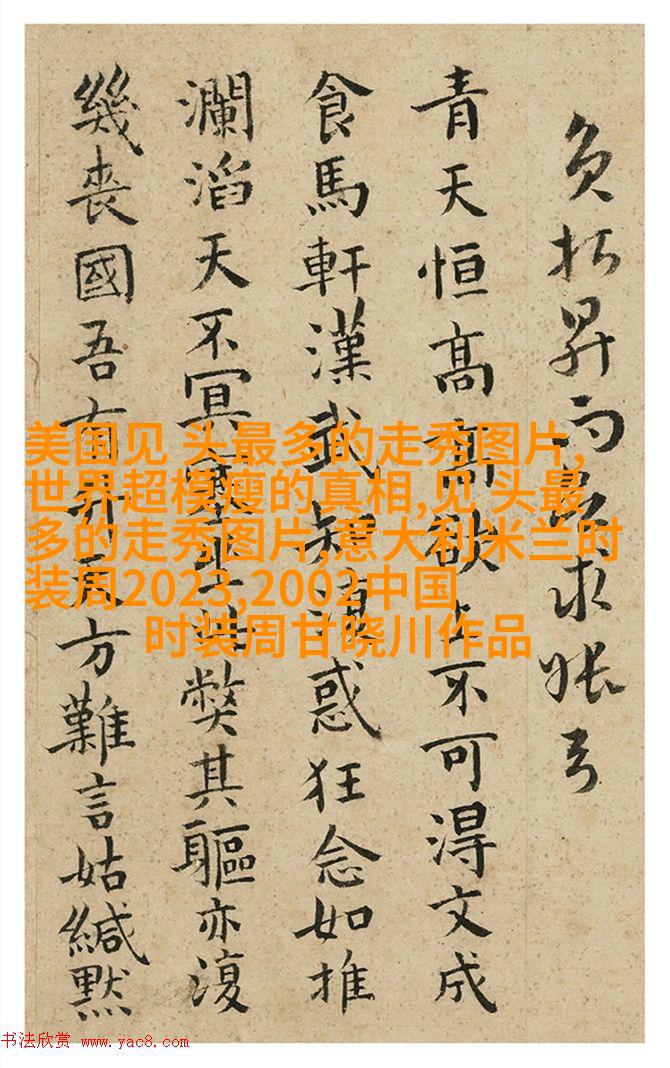 昇而求
青天恒高欲上不可得文成
食馬軒漢武知復惑狂念如推
瀾滔天不冥弊其軀亦復
幾喪國吾有昇天方難言姑緘默
美国见 头最多的走秀图片,
世界超模瘦的真相,见 头最
多的走秀图片,意大利米兰时
装周2023,2002中国
时装周甘晓川作品
书法欣赏 www.yac8.com